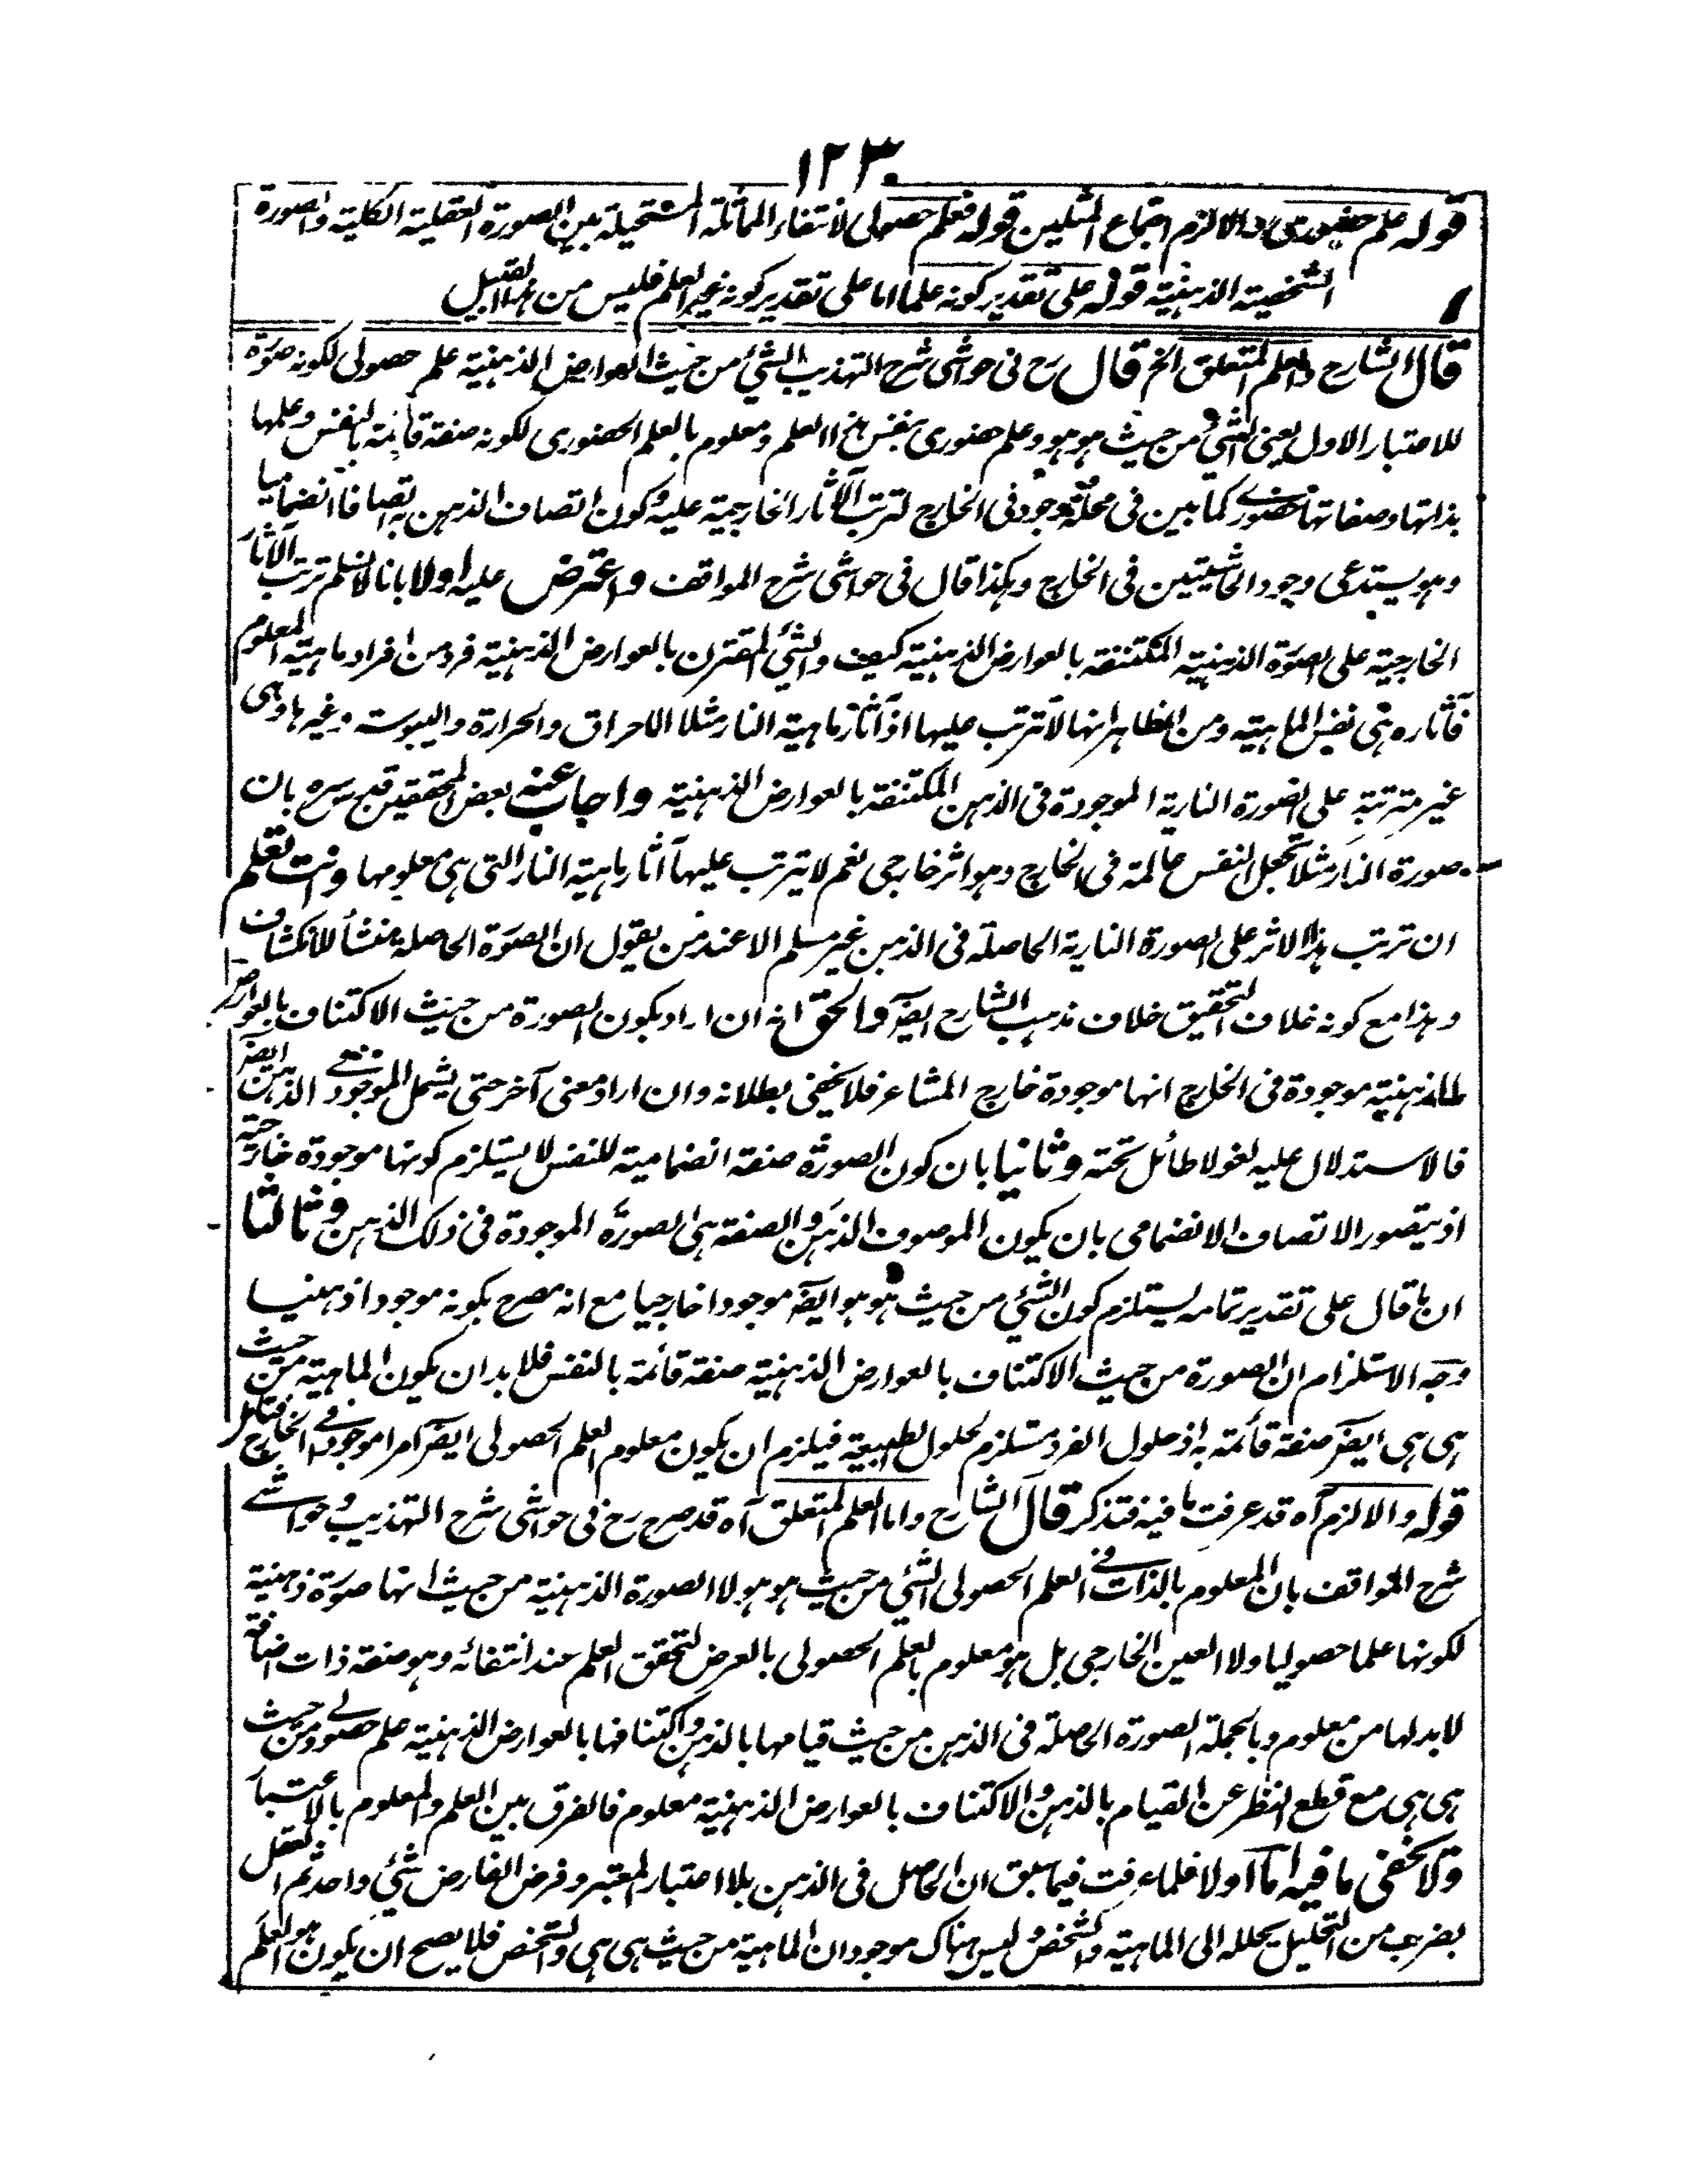 ١٢٣
قوله علم حضوری والا لزم اجتماع المثلين قوله فعلم حصولی لانتفاء المماثلة المستحيلة بين الصورة العقلية الكلية والصورة
الشخصية الذهنية قوله علی تقدير كونه علما اما علی تقدير كونه غير العلم فليس من هذا القبيل
قال الشارح والعلم المتعلق الخ قال رح فی حواشی شرح التهذيب الشیٔ من حيث العوارض الذهنية علم حصولی لكونه صورة
للاعتبار الاول يعنی الشیٔ من حيث هو هو وعلم حضوری بنفس هذا العلم ومعلوم بالعلم الحضوری لكونه صفة قائمة بالنفس وعلمها
بذاتها وصفاتها حضوری كما بين فی محله وموجود فی الخارج لترتب الآثار الخارجية عليه ولكون اتصاف الذهن به اتصافا انضماميا
وهو يستدعی وجود الحاشيتين فی الخارج وهكذا قال فی حواشی شرح المواقف واعترض عليه اولا بانا لا نسلم ترتب الآثار
الخارجية علی الصورة الذهنية المكتنفة بالعوارض الذهنية كيف والشیٔ المقترن بالعوارض الذهنية فرد من افراد ماهية المعلوم
فآثاره هی نفس الماهية ومن الظاهر انها لا تترتب عليها اذ آثار ماهية النار مثلا الاحراق والحرارة واليبوسة وغيرها وهی
غير مترتبة علی الصورة النارية الموجودة فی الذهن المكتنفة بالعوارض الذهنية واجاب عنه بعض المحققين قدس سره بان
صورة النار مثلا تجعل النفس عالمة فی الخارج وهو اثر خارجی نعم لا يترتب عليها آثار ماهية النار التی هی معلومها وانت تعلم
ان ترتب هذا الاثر علی الصورة النارية الحاصلة فی الذهن غير مسلم الا عند من يقول ان الصورة الحاصلة منشأ للانكشاف
وهذا مع كونه خلاف التحقيق خلاف مذهب الشارح ايضا والحق انه ان اراد بكون الصورة من حيث الاكتناف بالعوارض
الذهنية موجودة فی الخارج انها موجودة خارج المشاعر فلا يخفی بطلانه وان اراد معنی آخر حتی يشمل الموجود فی الذهن ايضا
فالاستدلال عليه لغو لا طائل تحته وثانيا بان كون الصورة صفة انضمامية للنفس لا يستلزم كونها موجودة خارجية
اذ يتصور الاتصاف الانضمامی بان يكون الموصوف الذهن والصفة هی الصورة الموجودة فی ذلك الذهن وثالثا
ان ما قال علی تقدير تمامه يستلزم كون الشیٔ من حيث هو هو ايضا موجودا خارجيا مع انه مصرح بكونه موجودا ذهنيا
وجه الاستلزام ان الصورة من حيث الاكتناف بالعوارض الذهنية صفة قائمة بالنفس فلا بد ان يكون الماهية من حيث
هی هی ايضا صفة قائمة به اذ حلول الفرد مستلزم لحلول الطبيعة فيلزم ان يكون معلوم العلم الحصولی ايضا امرا موجودا فی الخارج فتأمل
قوله والا لزم آه قد عرفت ما فيه فتذكر قال الشارح واما العلم المتعلق آه قد صرح رح فی حواشی شرح التهذيب وحواشی
شرح المواقف بان المعلوم بالذات فی العلم الحصولی الشیٔ من حيث هو هو لا الصورة الذهنية من حيث انها صورة ذهنية
لكونها علما حصوليا ولا العين الخارجی بل هو معلوم بالعلم الحصولی بالعرض لتحقق العلم عند انتفائه وهو صفة ذات اضافة
لا بد لها من معلوم وبالجملة الصورة الحاصلة فی الذهن من حيث قيامها بالذهن واكتنافها بالعوارض الذهنية علم حصولی ومن حيث
هی هی مع قطع النظر عن القيام بالذهن والاكتناف بالعوارض الذهنية معلوم فالفرق بين العلم والمعلوم بالاعتبار
ولا يخفی ما فيه اما اولا فلما عرفت فيما سبق ان الحاصل فی الذهن بلا اعتبار المعتبر وفرض الفارض شیٔ واحد ثم العقل
بضرب من التحليل يحلله الی الماهية والتشخص وليس هناك موجودان الماهية من حيث هی هی والتشخص فلا يصح ان يكون هو العلم